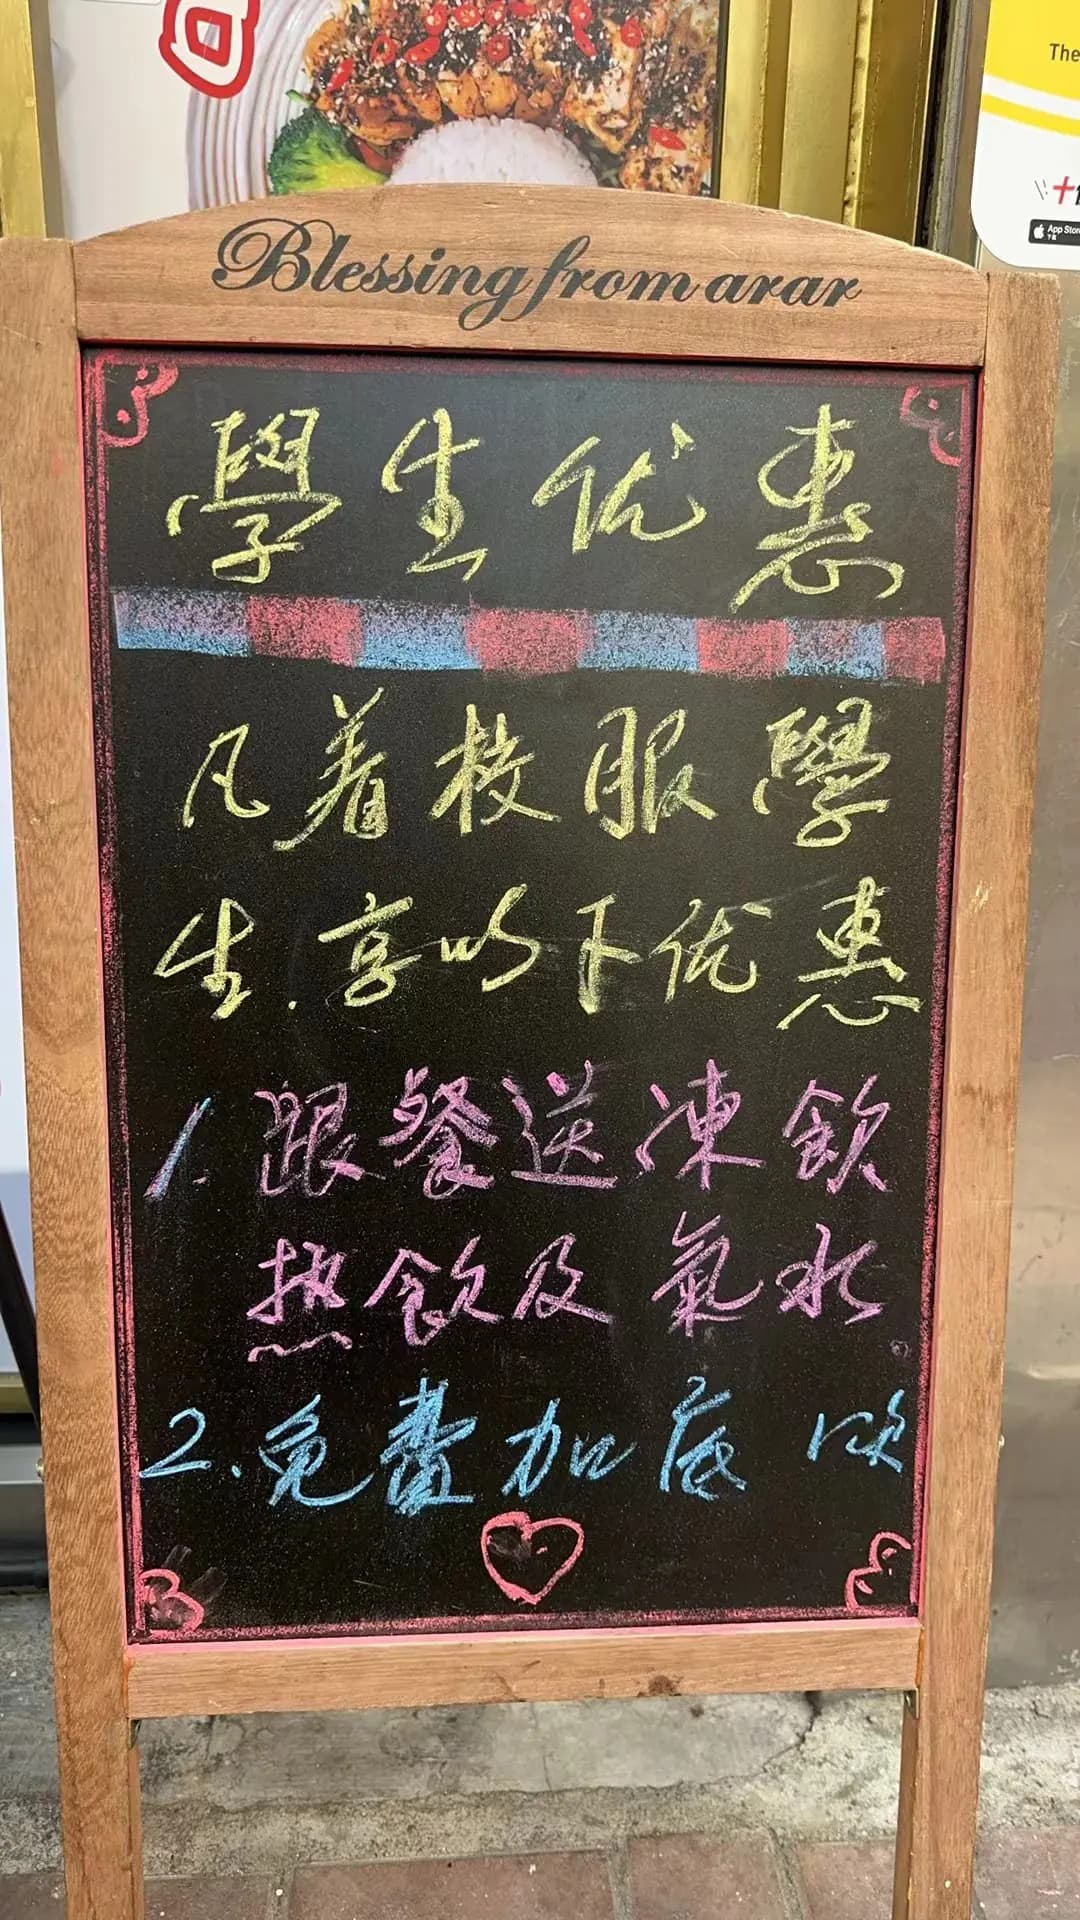 The
App Store
Blessing from arar
學生优惠
凡着校服學
生.享以下优惠
1.跟餐送凍飲
热飲及氣水
2.免費加底